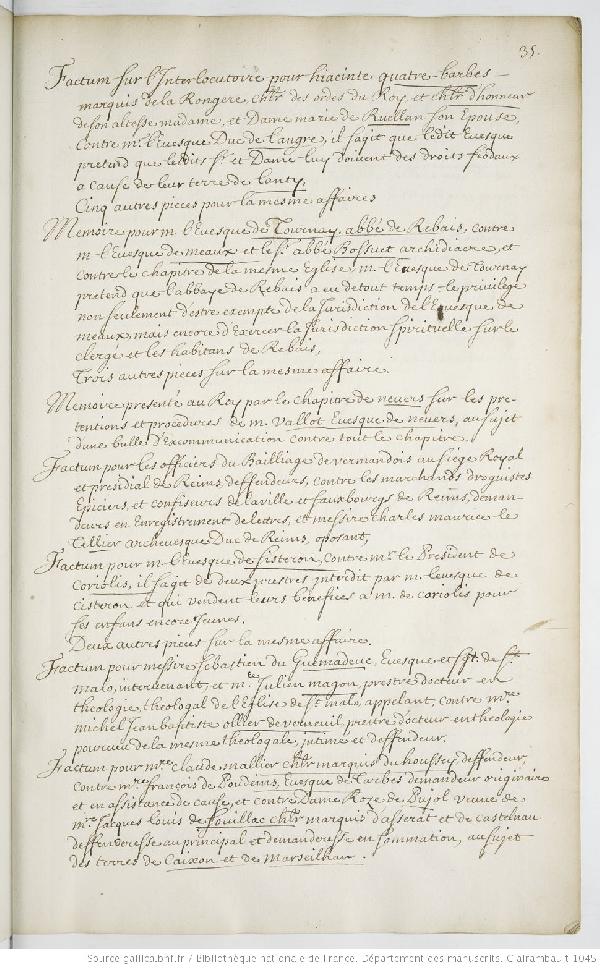 35.
Factum sur l'Interlocutoire pour hiacinte quatre-barbes
marquis de la Rongere, chlr des ordes du Roy et chlr d'honneur
de son altesse madame, et Dame marie de Ruellan son Epouse,
contre mr. l'Evesque Duc de Langre, il sagit que ledit Evesque
pretend que lesdits sr. et Dame luy doivent des droits feodaux
a cause de leur terre de Lanty,
Cinq autres pieces pour la mesme affaires
Memoire pour m. l'Evesque de Tournay, abbé de Rebais, contre
m. l'Evesque de meaux et le sr. abbé Bossuet archidiacre, et
contre le chapitre de la mesme Eglise, m. l'Evesque de Tournay
pretend que l'abbaye de Rebais a eu de tout temps le privilege
non seulement d'estre exempte de la Jurisdiction de l'Evesque de
meaux, mais encore d'Exercer la Jurisdiction spirituelle sur le
clergé et les habitans de Rebais,
Trois autres pieces sur la mesme affaire.
Memoire presenté au Roy par le chapitre de nevers sur les pre-
tentions et procedures de m. Vallot Evesque de nevers, au sujet
d'une bulle d'Excommunication contre tout le chapitre.
Factum pour les officiers du Bailliage de vermandois au siege Royal
et presidial de Reims, deffendeurs, contre les marchands droguistes
Epiciers, et confiseurs de la ville et fauxbourgs de Reims, deman-
deurs en Enregistrement de lettres, et messire Charles maurice le
Tellier archevesque Duc de Reims, oposant,
Factum pour m. l'Evesque de sisteron, contre mr. le President de
Coriolis, il sagit de deux prestres interdit par m. l'evesque de
cisteron et qui vendent leurs benefices a m. de coriolis pour
ses enfans encore Jeunes.
Deux autres pieces sur la mesme affaire.
Factum pour messire sebastien du Guemadeuc, Evesque et sgr. de st.
malo, intervenant, et me. Julien magon, prestre docteur en
theologie, theologal de l'Eglise de st. malo, appelant, contre mre.
michel Jean baptiste ollier de verneuil prestre docteur en theologie
pourveu de la mesme theologale, intimé et deffendeur.
Factum pour mre. claude mallier chlr marquis du houssey deffendeur,
contre mre. françois de Poudenx, Evesque de tarbes demandeur originaire
et en assistance de cause, et contre Dame Roze de Pujol veuve de
mre. Jacques Louis de fouillac chlr marquis d'asserat et de castelnau
deffenderesse au principal et demanderesse en sommation, au sujet
des terres de Caixon et de Marseilhan.
Source gallica.bnf.fr / Bibliothèque nationale de France. Département des manuscrits. Clairambault 1045